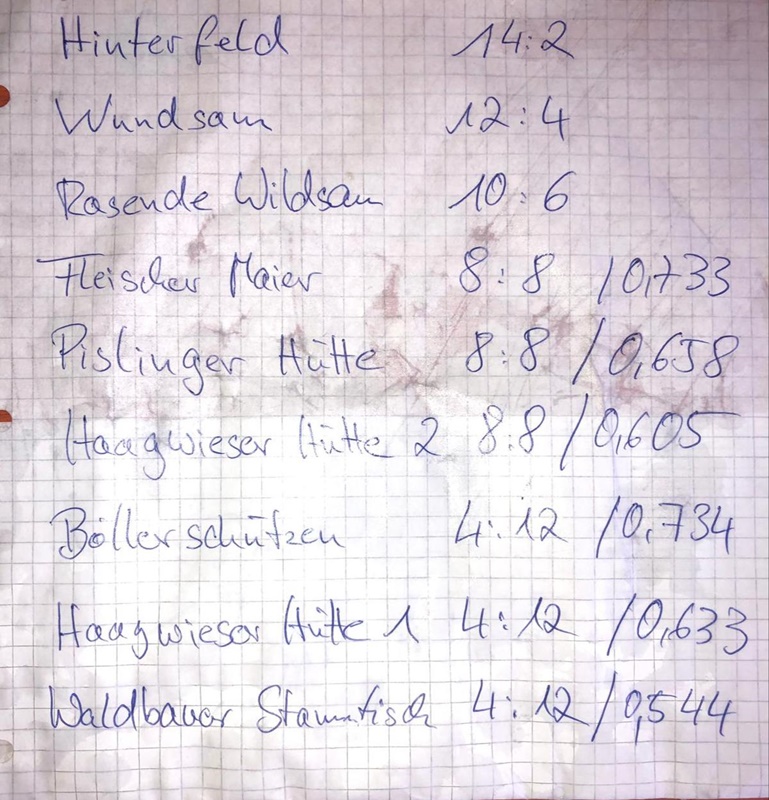 Hinterfeld 14:2
Wundsam 12:4
Rasende Wildsau 10:6
Fleischer Maier 8:8 /0,733
Pislinger Hütte 8:8 /0,658
Haagwieser Hütte 2 8:8 /0,605
Böllerschützen 4:12 /0,734
Haagwieser Hütte 1 4:12 /0,633
Waldbauer Stammtisch 4:12 /0,544